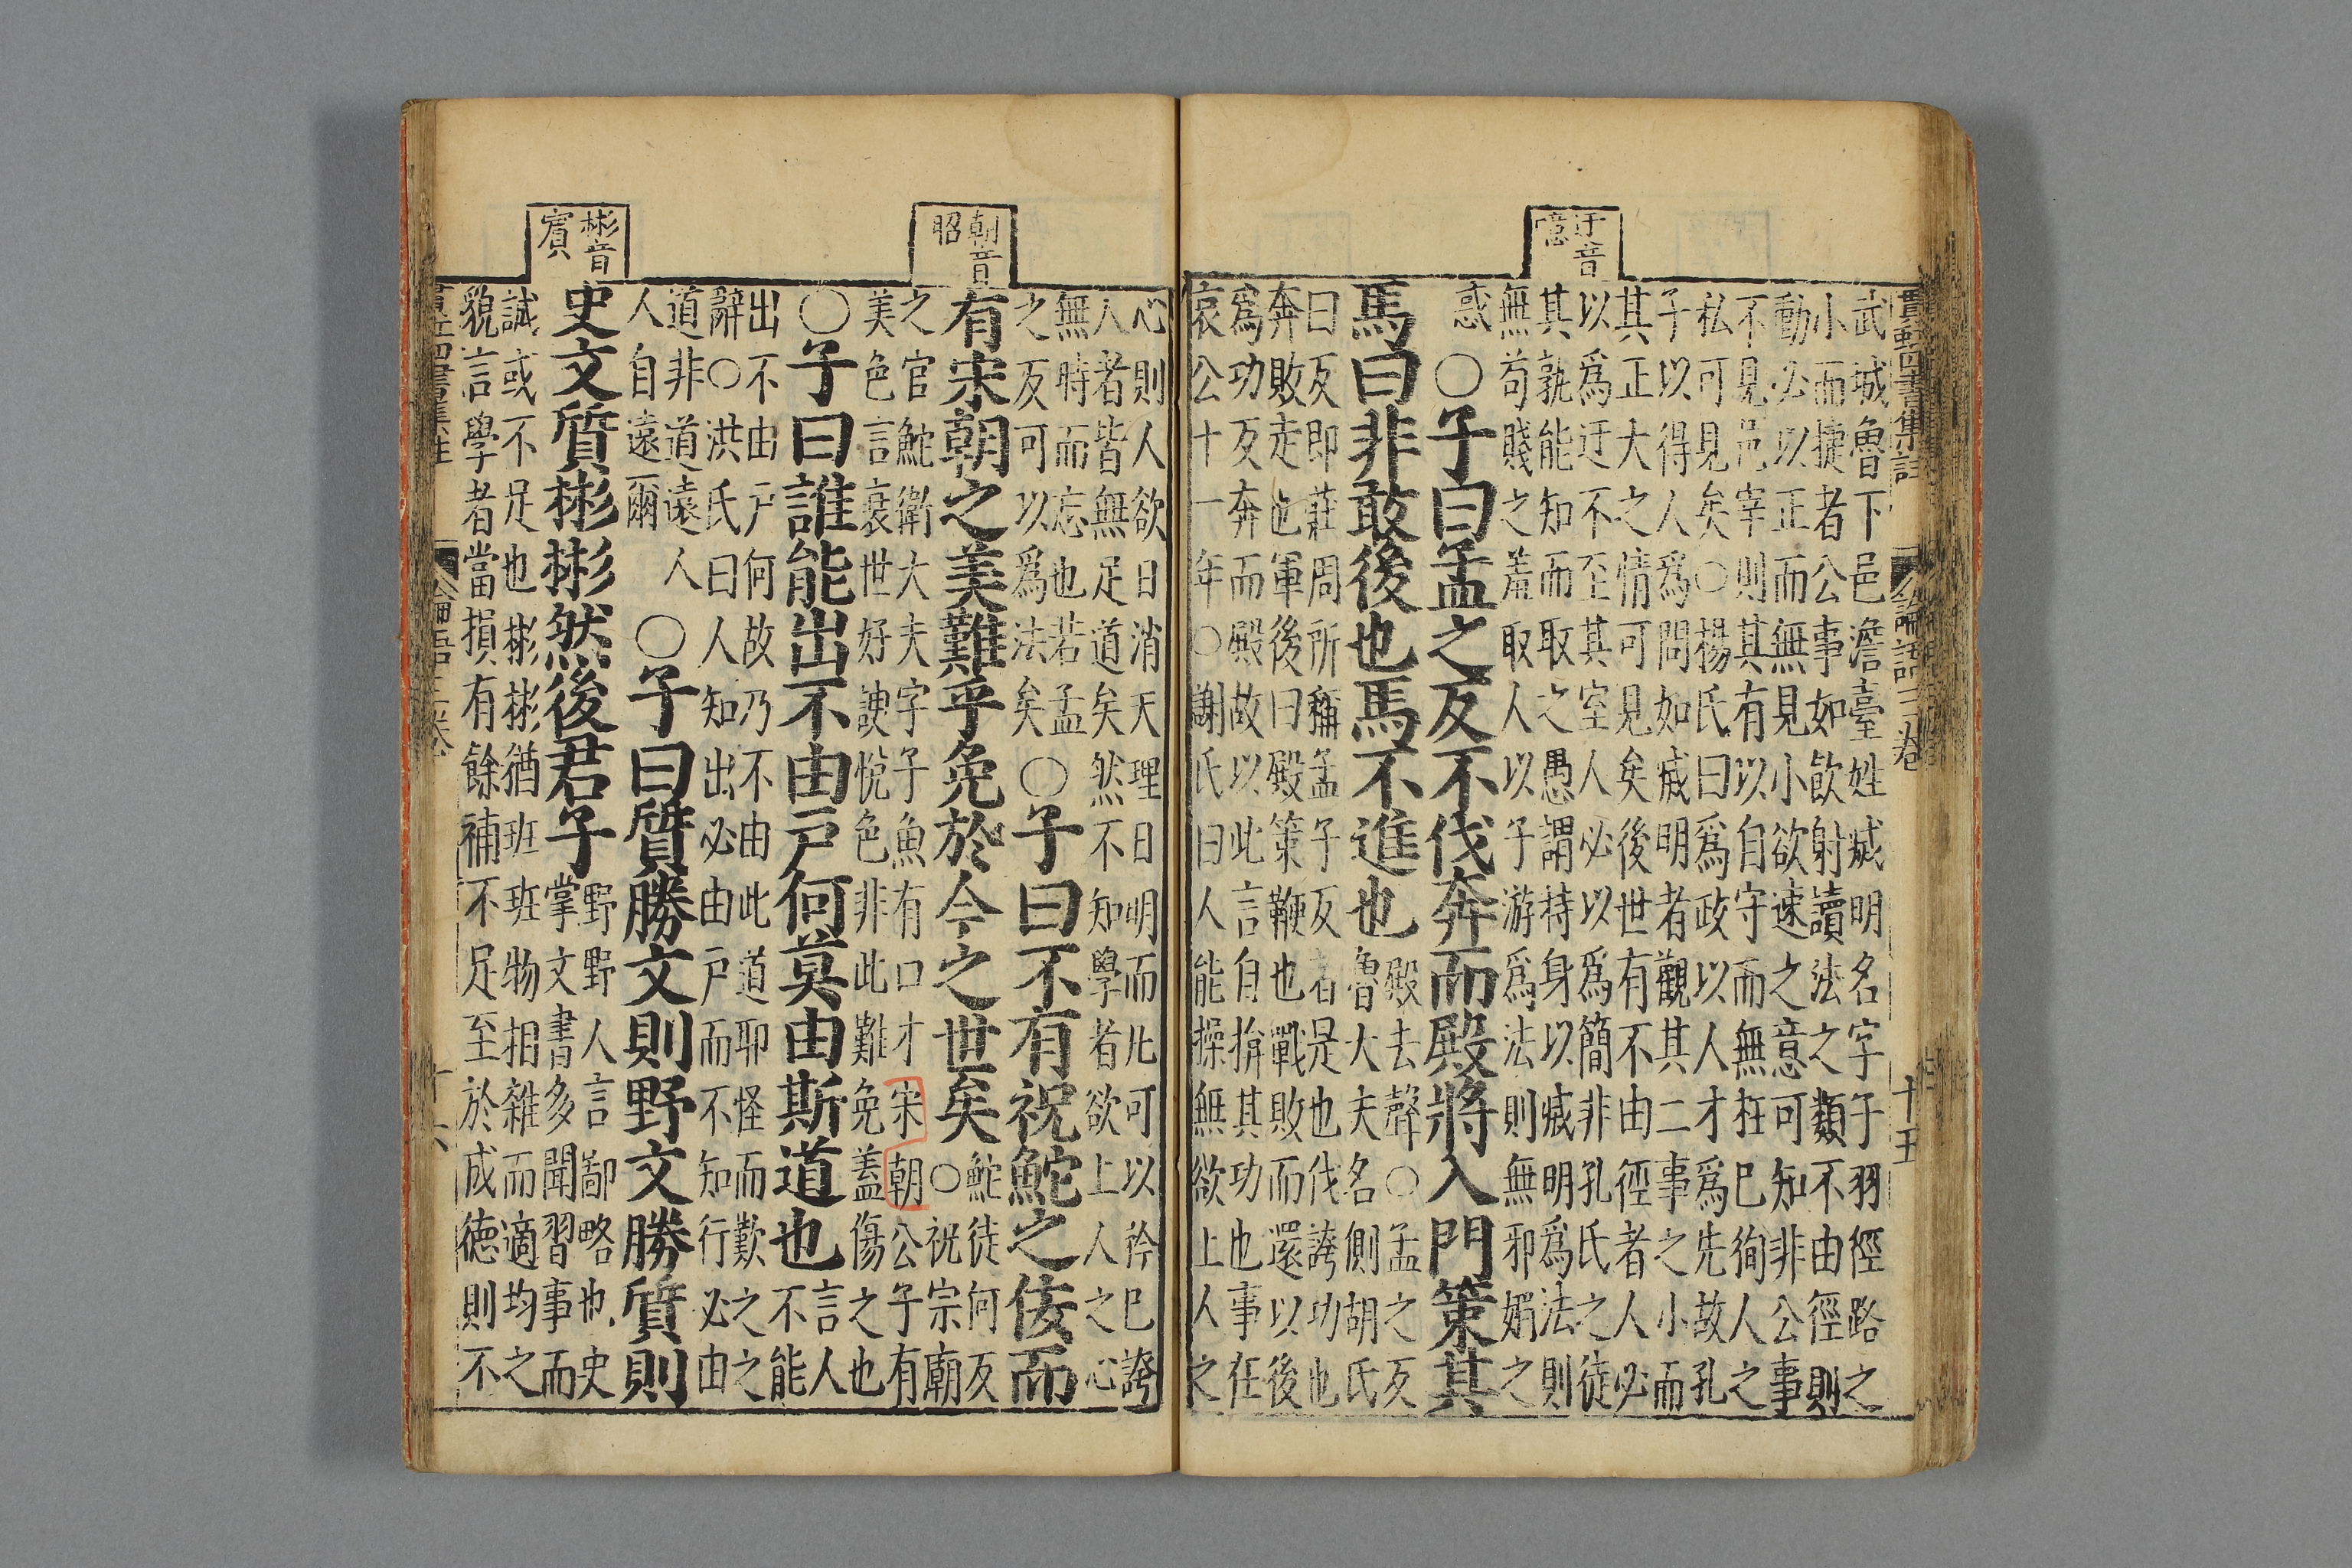 四書集註 論語三卷 十五
迂音
意
武城魯下邑澹臺姓滅明名字子羽徑路之
小而捷者公事如飲射讀法之類不由徑則
動必以正而無見小欲速之意可知非公事
不見邑宰則其有以自守而無枉巳徇人之
私可見矣○楊氏曰爲政以人才爲先故孔
子以得人爲問如滅明者觀其二事之小而
其正大之情可見矣後世有不由徑者人必
以爲迂不至其室人必以爲簡非孔氏之徒
其孰能知而取之愚謂持身以滅明爲法則
無苟賤之羞取人以子游爲法則無邪媚之
惑
○子曰孟之反不伐奔而殿將入門策其
馬曰非敢後也馬不進也
殿去聲○孟之反
魯大夫名側胡氏
曰反即莊周所稱孟子反者是也伐誇功也
奔敗走也軍後曰殿策鞭也戰敗而還以後
爲功反奔而殿故以此言自揜其功也事在
哀公十一年○謝氏曰人能操無欲上人之
朝音
昭
彬音
賓
心則人欲日消天理日明而凡可以矜巳誇
人者皆無足道矣然不知學者欲上人之心
無時而忘也若孟
之反可以爲法矣
○子曰不有祝鮀之佞而
有宋朝之美難乎免於今之世矣
鮀徒何反
○祝宗廟
之官鮀衛大夫字子魚有口才宋朝公子有
美色言衰世好諛悅色非此難免蓋傷之也
○子曰誰能出不由戶何莫由斯道也
言人
不能
出不由戶何故乃不由此道耶怪而歎之之
辭○洪氏曰人知出必由戶而不知行必由
道非道遠人
人自遠爾
○子曰質勝文則野文勝質則
史文質彬彬然後君子
野野人言鄙略也史
掌文書多聞習事而
誠或不足也彬彬猶班班物相雜而適均之
貌言學者當損有餘補不足至於成德則不
四書集註 論語三卷 十六